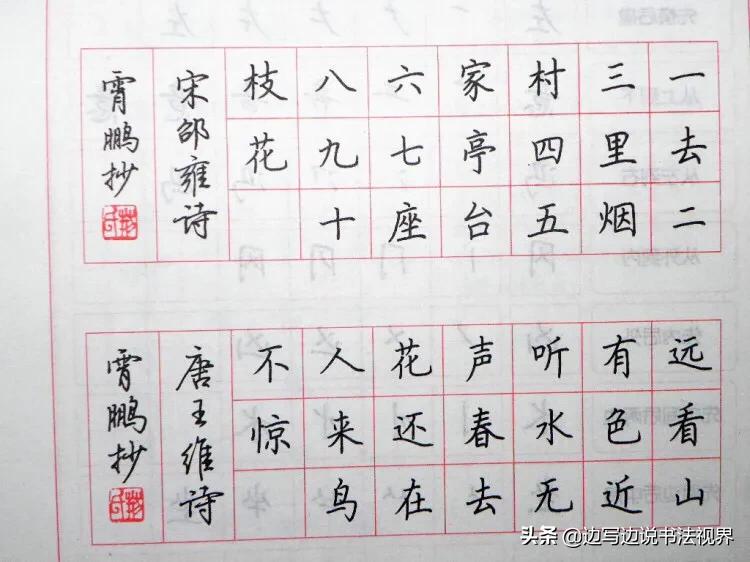 一去二
三里烟
村四五
家亭台
六七座
八九十
枝花
宋邵雍诗
霄鹏抄
远看山
有色近
听水无
声春去
花还在
人来鸟
不惊
唐王维诗
霄鹏抄
头条 @边写边说书法视界